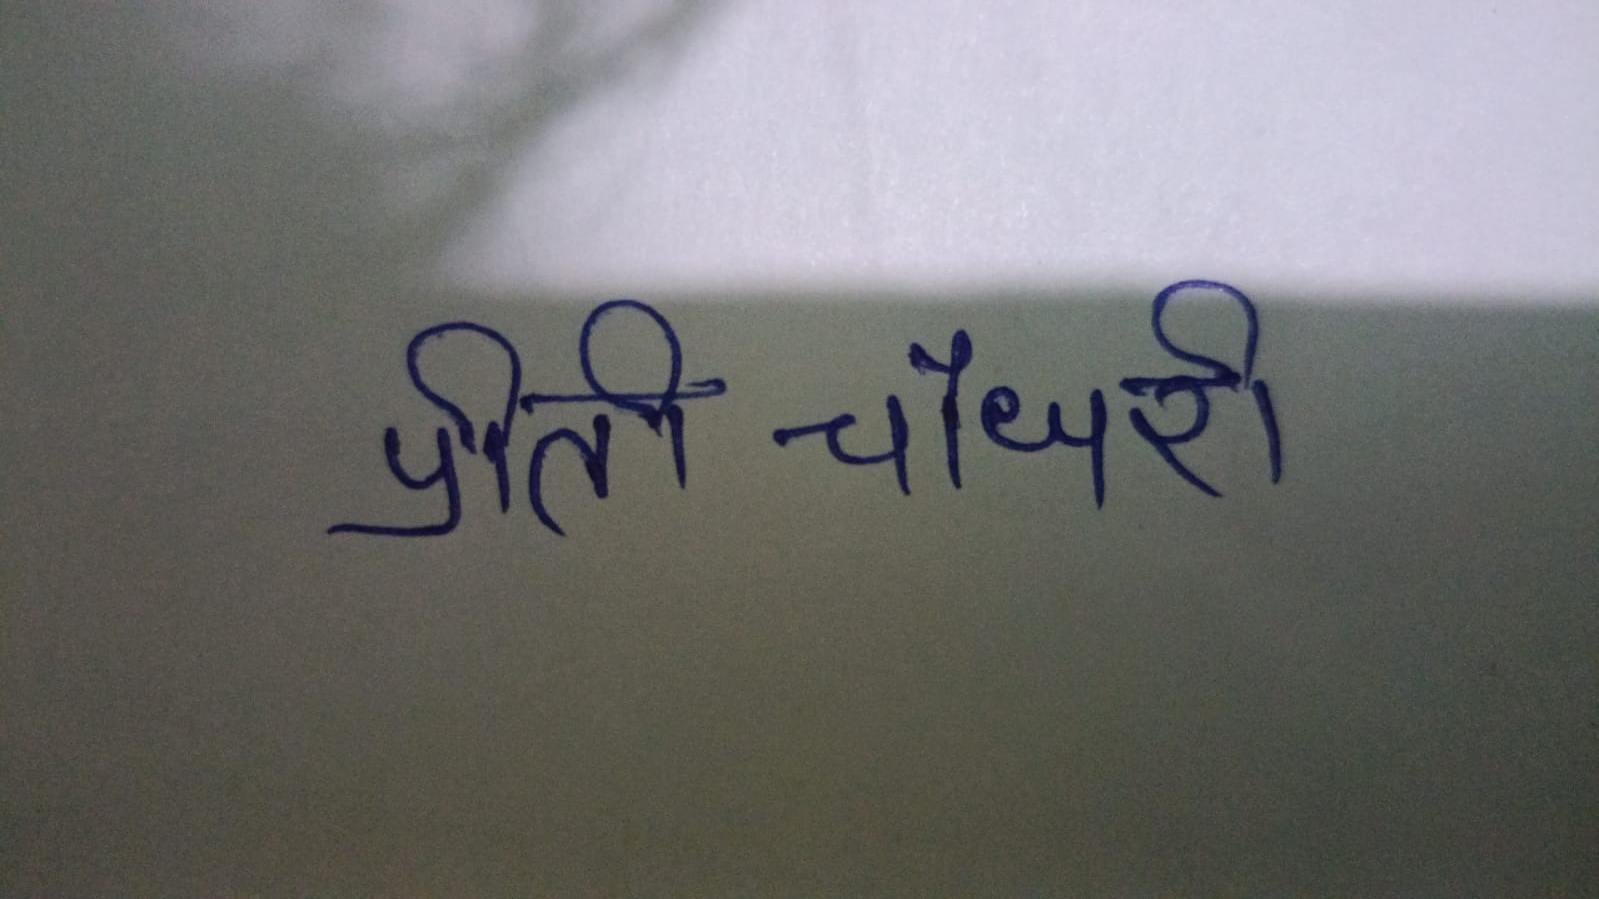 प्रीती चौधरी